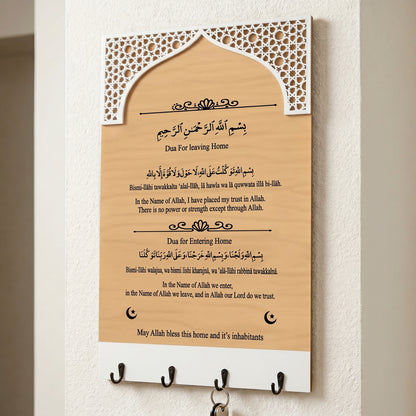 بِسْمِ اللَّهِ الرَّحْمَنِ الرَّحِيمِ
Dua For leaving Home
بِسْمِ اللَّهِ تَوَكَّلْتُ عَلَى اللَّهِ، لَا حَوْلَ وَلَا قُوَّةَ إِلَّا بِاللَّهِ
Bismi-llāhi tawakkalta 'alal-llāh, lā hawla wa lā quwwata illā bi-llāh.
In the Name of Allah, I have placed my trust in Allah.
There is no power or strength except through Allah.
Dua for Entering Home
بِسْمِ اللَّهِ وَلَجْنَا، وَبِسْمِ اللَّهِ خَرَجْنَا، وَعَلَى اللَّهِ رَبِّنَا تَوَكَّلْنَا
Bismi-llāhi walajna, wa bismi llshi kharajnā, wa 'alā-llāhi rabbinā tawakkalnā.
In the Name of Allah we enter,
in the Name of Allah we leave, and in Allah our Lord do we trust.
May Allah bless this home and it's inhabitants